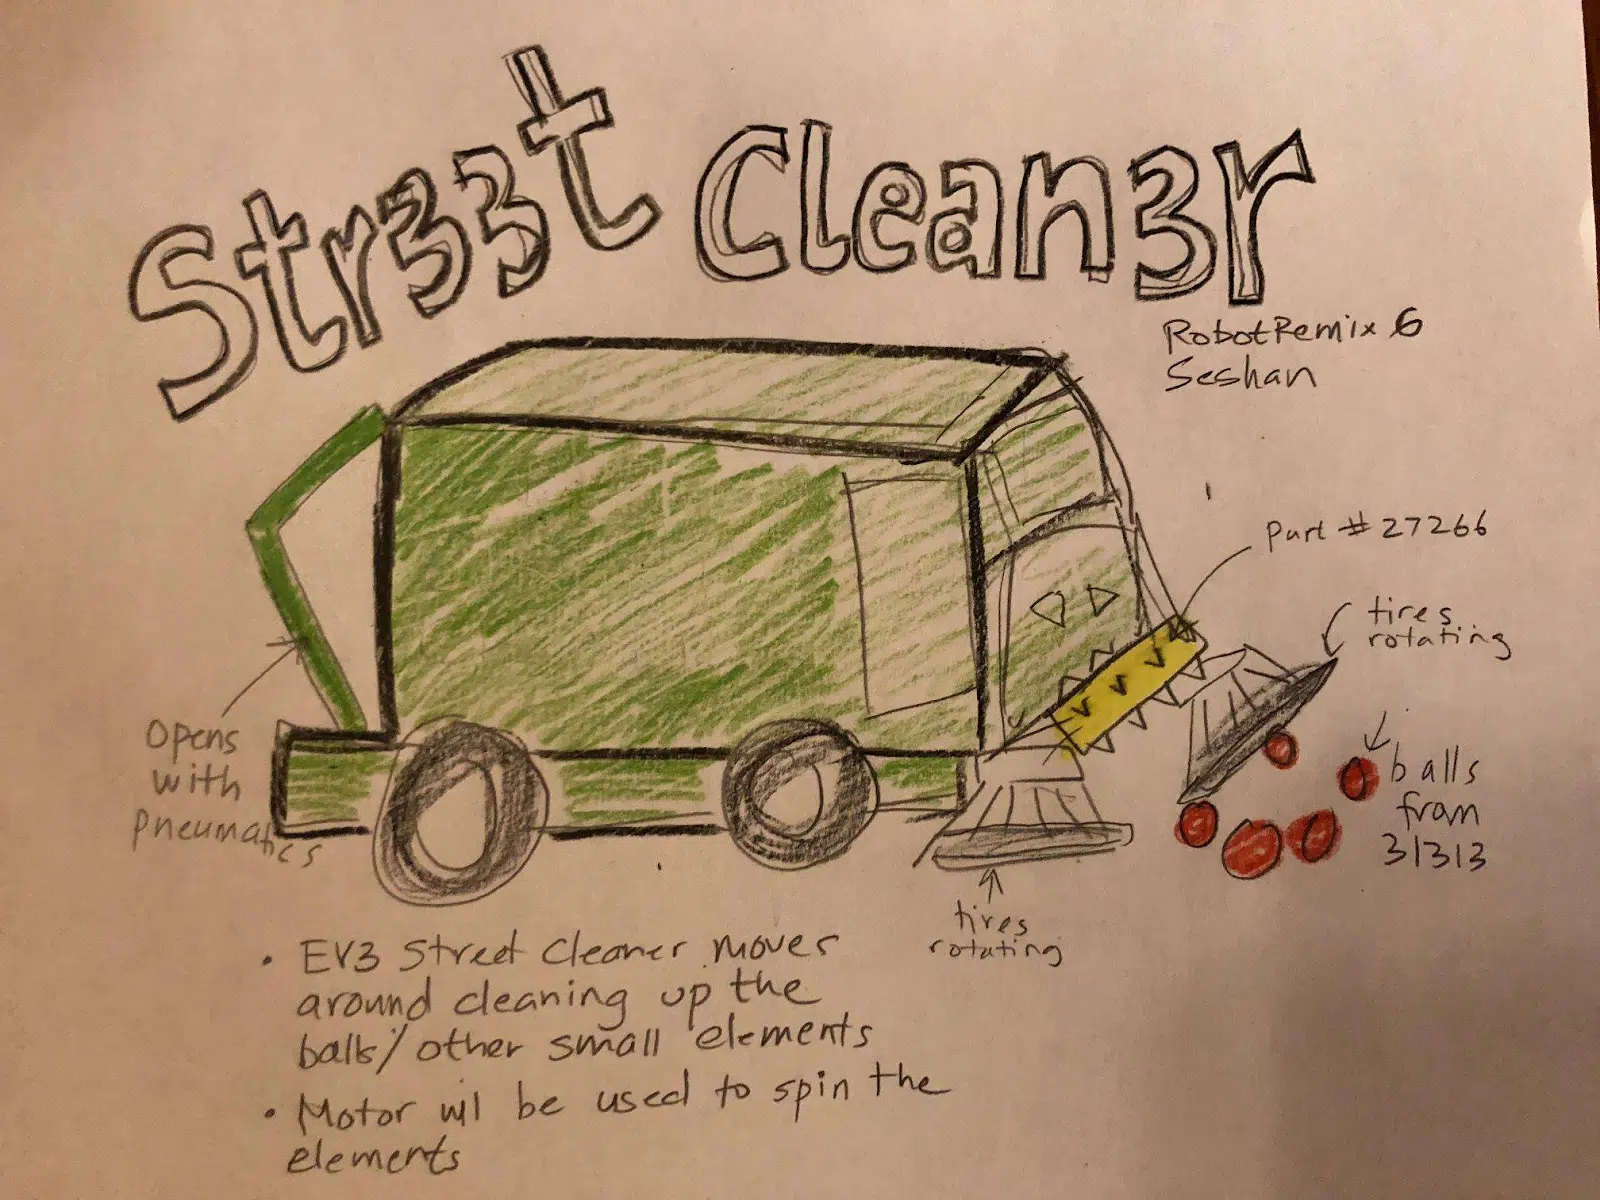 Str33t Clean3r
RobotRemix 6
Seshan
Part # 27266
tires
rotating
Opens
with
Pneumatics
balls
from
31313
tires
rotating
• EV3 Street Cleaner moves
around cleaning up the
balls/other small elements
• Motor wil be used to spin the
elements